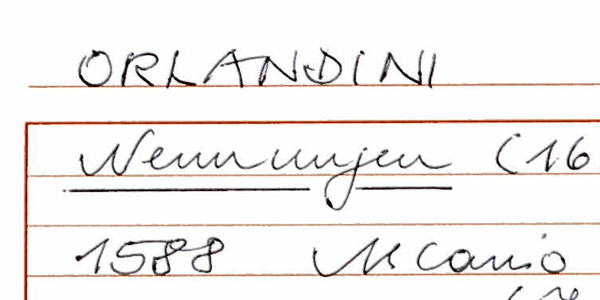 ORLANDINI
Nennungen (16
1588 Ascanio